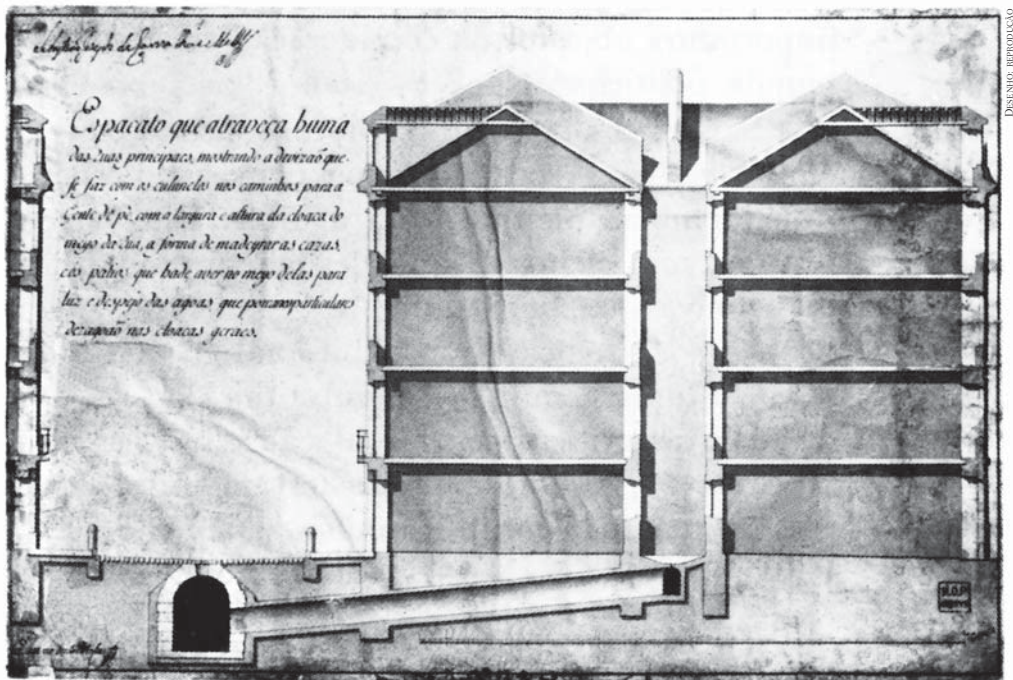 Espacato que atraveça huma
das Ruas principaes, mostrando a devizaõ que
se faz com os culunelos nos caminhos para a
Gente de pè, com a largura e altura da cloaca do
meyo da Rua, a forma de madeyrar as cazas,
e os patios que hade aver no meyo delas para
luz e despejo das agoas, que por canos particulares
dezagoaõ nas cloacas geraes.
DESENHO: REPRODUÇÃO